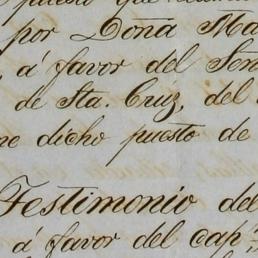 puesto que
por Doña Ma
, á favor del Señ
de Sta. Cruz, del
ne dicho puesto de
Testimonio del
á favor del capn.